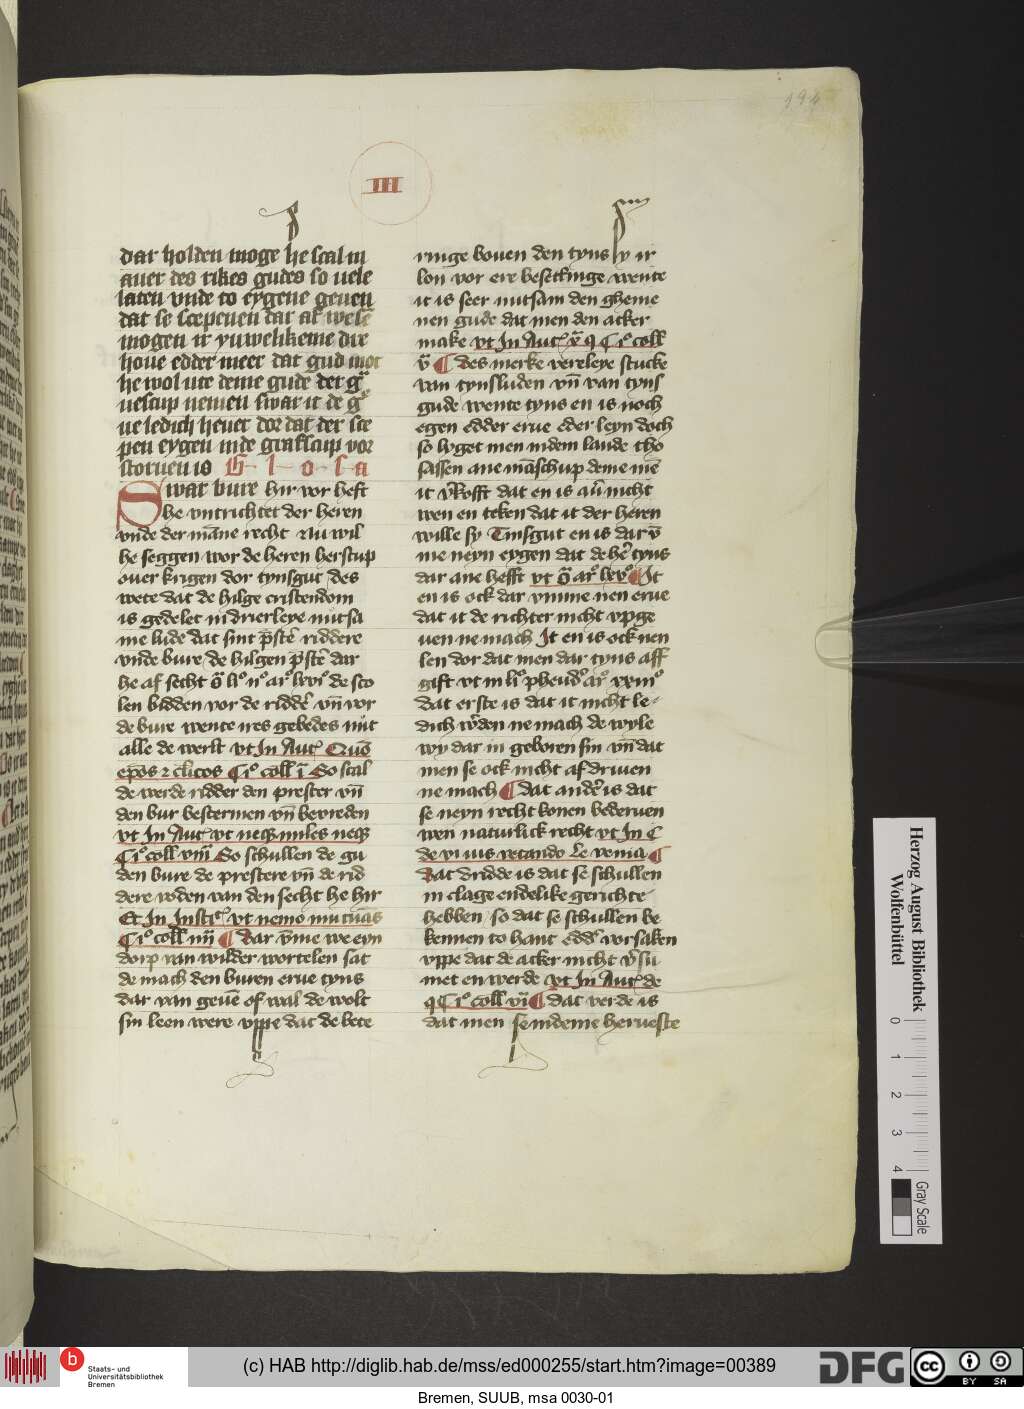 194
III
dat holden moge he scal in
auer des rikes gudes so uele
laten vnde to eygene geuen
dat se scepenen dar af wesē
mogen it ynwelikeme dre
houe edder meer dat gud mot
he wol ute deme gude der g̈
uescup nemen swar it de g̈
ue ledich heuet dor dat der sce
pen eygen inde grafscup vor
storuen is G l o s a
Swat bure hir vor heft
he vntrichtet der heren
vnde der māne recht Nu wil
he seggen wor de heren herscup
ouer krigen dor tynsgut des
wete dat de hilge cristendom
is gedelet in drierleye nutsa
me lude dat sint p̄stē riddere
vnde bure de hilgen p̄stē dar
he af secht
len bidden vor de ridder vn̄ vor
de bure wente ires gebedes nut
alle de werlt vt In Aut Quō
ep̄os ⁊ cl̄icos C i° coll ī So scal
de werde ridder den prester vn̄
den bur bescermen vn̄ bevreden
vt In Aut vt neq miles neq
C i° coll viii So schullen de gu
den bure de prestere vn̄ de rid
dere voden van den secht he hir
Et In Instit vt nemo mutuas
C i° coll iiii Dar v̄me we eyn
dorp van wilder wortelen sat
de mach den buren erue tyns
dar van geuē of wal de wolt
sin leen were vppe dat de bete
ringe bouen den tyns sy ir
lon vor ere besettinge wente
it is seer nutsam den gheme
nen gude dat men den acker
make vt In Aut
des merke verleye stucke
van tynsluden vn̄ van tyns
gude wente tyns en is noch
egen edder erue eder leyn doch
so lyget men indem lande tho
sassen ane māschup deme mē
it v̄kofft dat en is au̇ nicht
wen en teken dat it der heren
wille sy Tinsgut en is dar v̄
me neyn eygen dat de hē tyns
dar ane hefft vt It
en is ock dar vmme nen erue
dat it de richter nicht vpge
uen ne mach It en is ock nen
len dor dat men dar tyns aff
gift vt in li° pheud ar° xxiii°
dat erste is dat it nicht le-
dich w̄den ne mach de wyle
wy dar in geboren sin vn̄ dat
men se ock nicht af driuen
ne mach dat andē is dat
se neyn recht konen bederuen
wen naturlick recht vt In C
de vsuris
Dat dridde is dat se schullen
in clage endelike gerichte
hebben so dat se schullen be
kennen to hant edd̄ vorsaken
vppe dat de acker nicht v̄sū
met en werde vt In Aut de
q C i° coll vi dat verde is
dat men se indeme herueste
Herzog August Bibliothek
Wolfenbüttel
0 1 2 3 4
Gray Scale
b
Staats- und
Universitätsbibliothek
Bremen
(c) HAB http://diglib.hab.de/mss/ed000255/start.htm?image=00389
DFG
cc BY SA
Bremen, SUUB, msa 0030-01